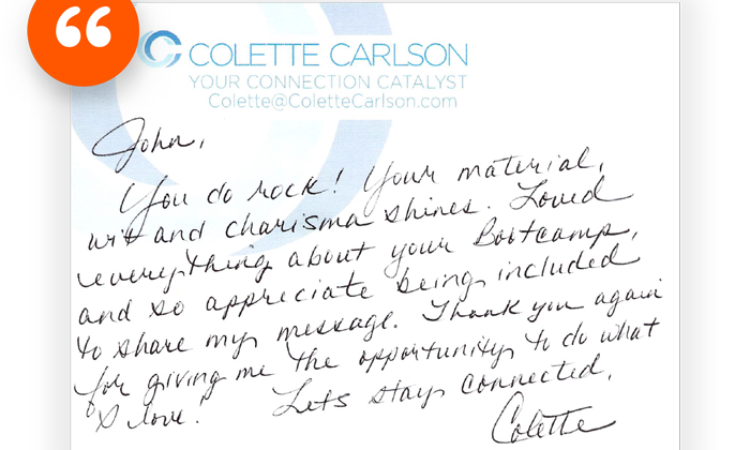 “
COLETTE CARLSON
YOUR CONNECTION CATALYST
Colette@ColetteCarlson.com
John,
You do rock! Your material,
wit and charisma shines. Loved
everything about your Bootcamp,
and so appreciate being included
to share my message. Thank you again
for giving me the opportunity to do what
I love! Lets stay connected,
Colette